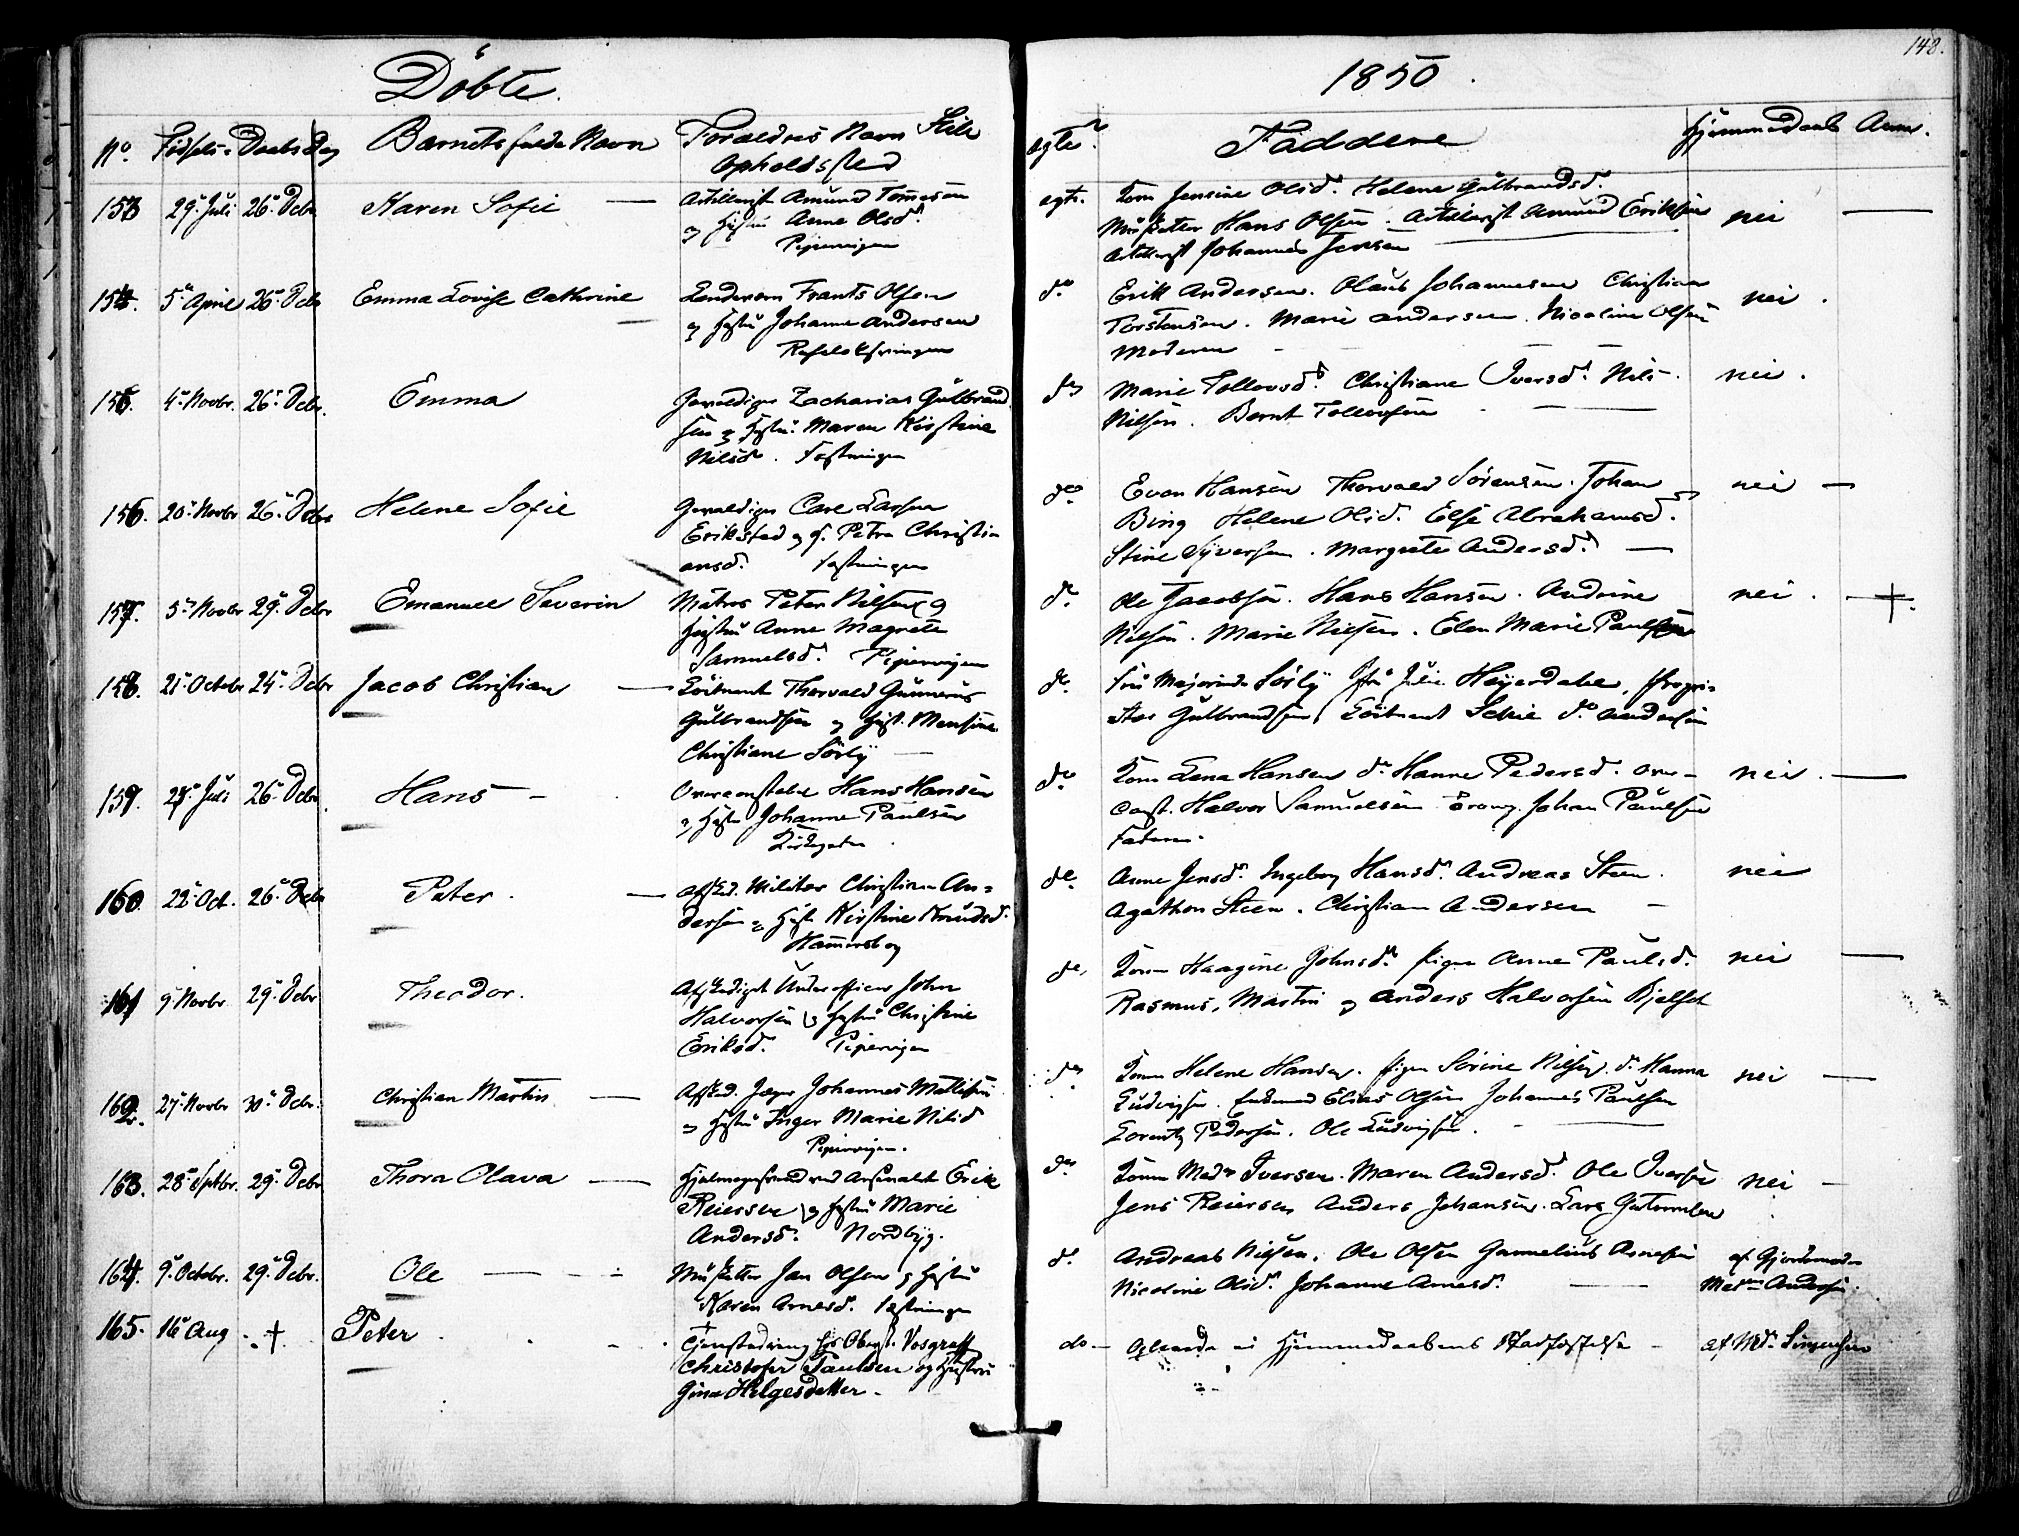 148.
Döbte.
1850.
No. Fødsels- Daabs Dag Barnets fulde Navn Forældres Navn Stile Opholdssted
ægte. Faddere Hjemmedaab Anm.
153 29 Juli 26 Debr Karen Sofie
Artillerist Amund Tomesen
og Hustru Anne Olsd.
Pipervigen
egte. Kone Jensine Olsd. Helene Gulbrandsd.
Musketer Hans Olsen. Artillerist Amund Eriksen nei
Artillerist Johannes Jensen
154. 5 April 26 Debr Emma Lovise Cathrine
Frants Olsen
og Hustru Johanne Andersen
do Erik Andersen. Olaus Johannesen Christian
Torstensen. Marie Andersen. Nicoline Olsen nei.
Moderen
155. 4 Novbr. 26 Debr. Emma
Gevaldiger Zacharias Gulbrand
sen og Hustru Maren Kirstine
Nilsd. Fæstningen
do Marie Tollevsd. Christiane Iversd. Nils nei.
Nilsen. Bernt Tollevsen
156. 20 Novbr 26 Debr Helene Sofie
Gevaldiger Carl Larsen
Erikstad og H. Petra Christi
ansd. Fæstningen
do Even Hansen Thorvald Sörensen. Johan nei
Bing Helene Olsd. Else Abrahamsd.
Stine Syversen. Margrete Andersd.
157. 5 Novbr 29 Debr Emanuel Severin
Matros Peter Nilsen og
Hustru Anne Magrete
Samuelsd. Pipervigen
do Ole Jacobsen. Hans Hansen. Andrine nei. +
Nilsen. Marie Nielsen. Elen Marie Paulsen
158. 21 Octobr 24 Debr Jacob Christian
Löitnant Thorvald Gunerus
Gulbrandsen og Hust. Mensine
Christiane Sörly
do Fru Majorinde Sörly Fru Julie Heyerdahl, Propri-
etær Gulbrandsen, Löitnant Schie do Andersen
159. 25 Juli 26 Debr. Hans
Overconstabel Hans Hansen
og Hustru Johanne Paulsen
do Kone Lena Hansen do Hanne Pedersd. Over- nei.
const. Halvor Samuelsen Johan Paulsen
Faderen.
160. 22 Oct. 26 Debr Peter.
Afsked. Militær Christian An-
dersen og Hustr Kirstine Knudsd.
Hammersborg
do Anne Jensd. Ingeborg Hansd. Andreas Steen. nei
Agathon Steen. Christian Andersen
161 9 Novbr. 29 Debr Theodor.
Afskediget Underofficer John
Halvorsen og Hustru Christine
Eriksd. Pipervigen
do, Kone Haagine Johnsd. Pigen Anne Paulsd. nei
Rasmus, Martin og Anders Halvorsen Bjelset
162. 27 Novbr 30 Debr. Christian Martin
Afsked. Jæger Johannes Mathisen
og Hustru Inger Marie Nilsd
Pipervigen.
do Kone Helene Hansen. Pigen Sörine Nilsen. do Hanna nei
Ludvigsen. Elias Olsen Johannes Paulsen
Lorentz Pedersen. Ole Ludvigsen.
163. 28 Septbr. 29 Debr Thora Olava
Hjulmagersvend ved Arsenalet Erik
Reiersen og Hustru Marie
Andersd. Nordbyg.
do Kone Iversen. Maren Andersd. Ole Iversen nei
Jens Reiersen Anders Johansen. Lars Guttormsen
164. 9 Octobr. 29 Debr. Ole
Musketer Jan Olsen og Hustru
Karen Arnesd. Fæstningen
do. Andreas Nilsen. Ole Olsen Gunnelius Arnesen
Nicoline Olsd. Johanne Arnesd.
af Gjordemoder
Mad. Andersen.
165. 16 Aug. + Peter
Tjenestedreng hos Oberst. Vosgraff
Christofer Paulsen og Hustru
Gina Helgesdatter.
do Hjemmedaabens Stadfæstelse
af Md. Sörensen